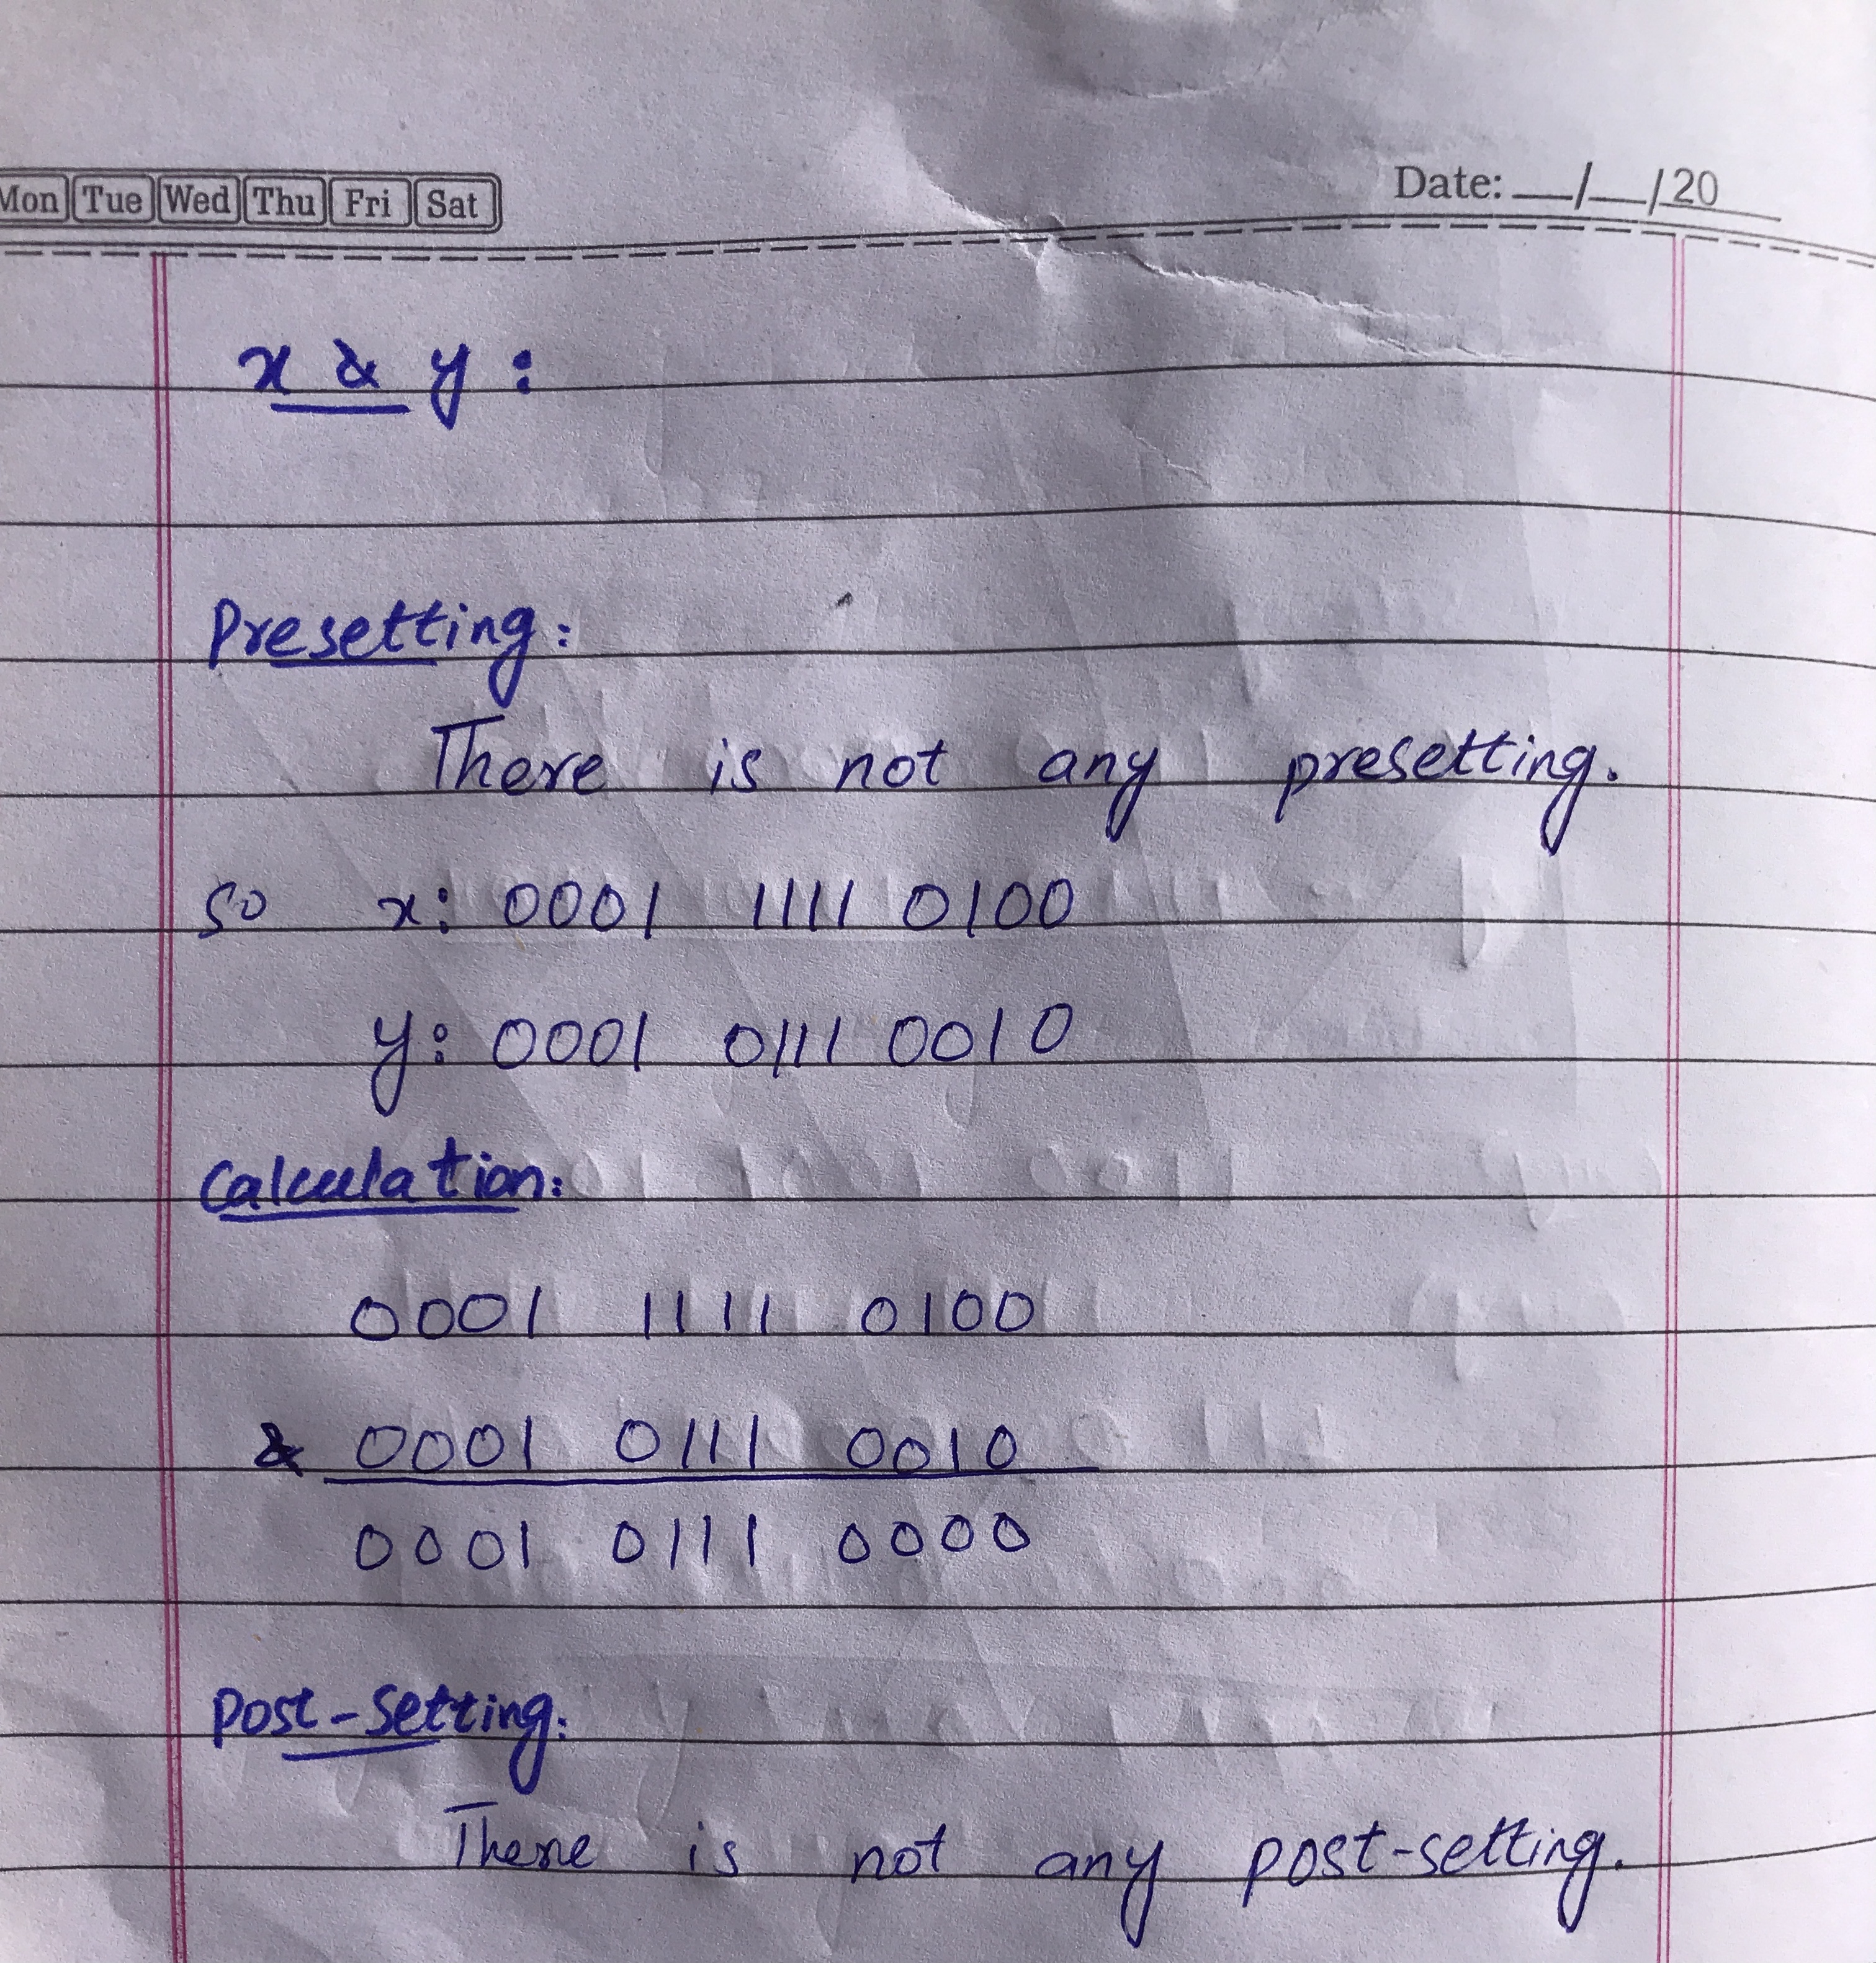 Mon Tue Wed Thu Fri Sat
Date: __/__/20__
x & y:
Presetting:
There is not any presetting.
so x: 0001 1111 0100
y: 0001 0111 0010
Calculation:
0001 1111 0100
& 0001 0111 0010
0001 0111 0000
Post-setting:
There is not any post-setting.